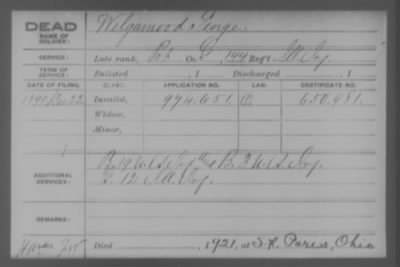 DEAD
NAME OF SOLDIER: Wilgamood George.
SERVICE: Late rank, Pvt Co. G, 144 Reg't Ill. Inf.
TERM OF SERVICE: Enlisted , 1 Discharged , 1
DATE OF FILING. CLASS. APPLICATION NO. LAW. CERTIFICATE NO.
1890 Dec 22 Invalid, 974.651. O. 650.981.
Widow,
Minor,
ADDITIONAL SERVICES: U.S. Inf B. 3 U.S. Inf.
12 Ill Inf.
REMARKS:
Died , 1921, at Paris, Ohio